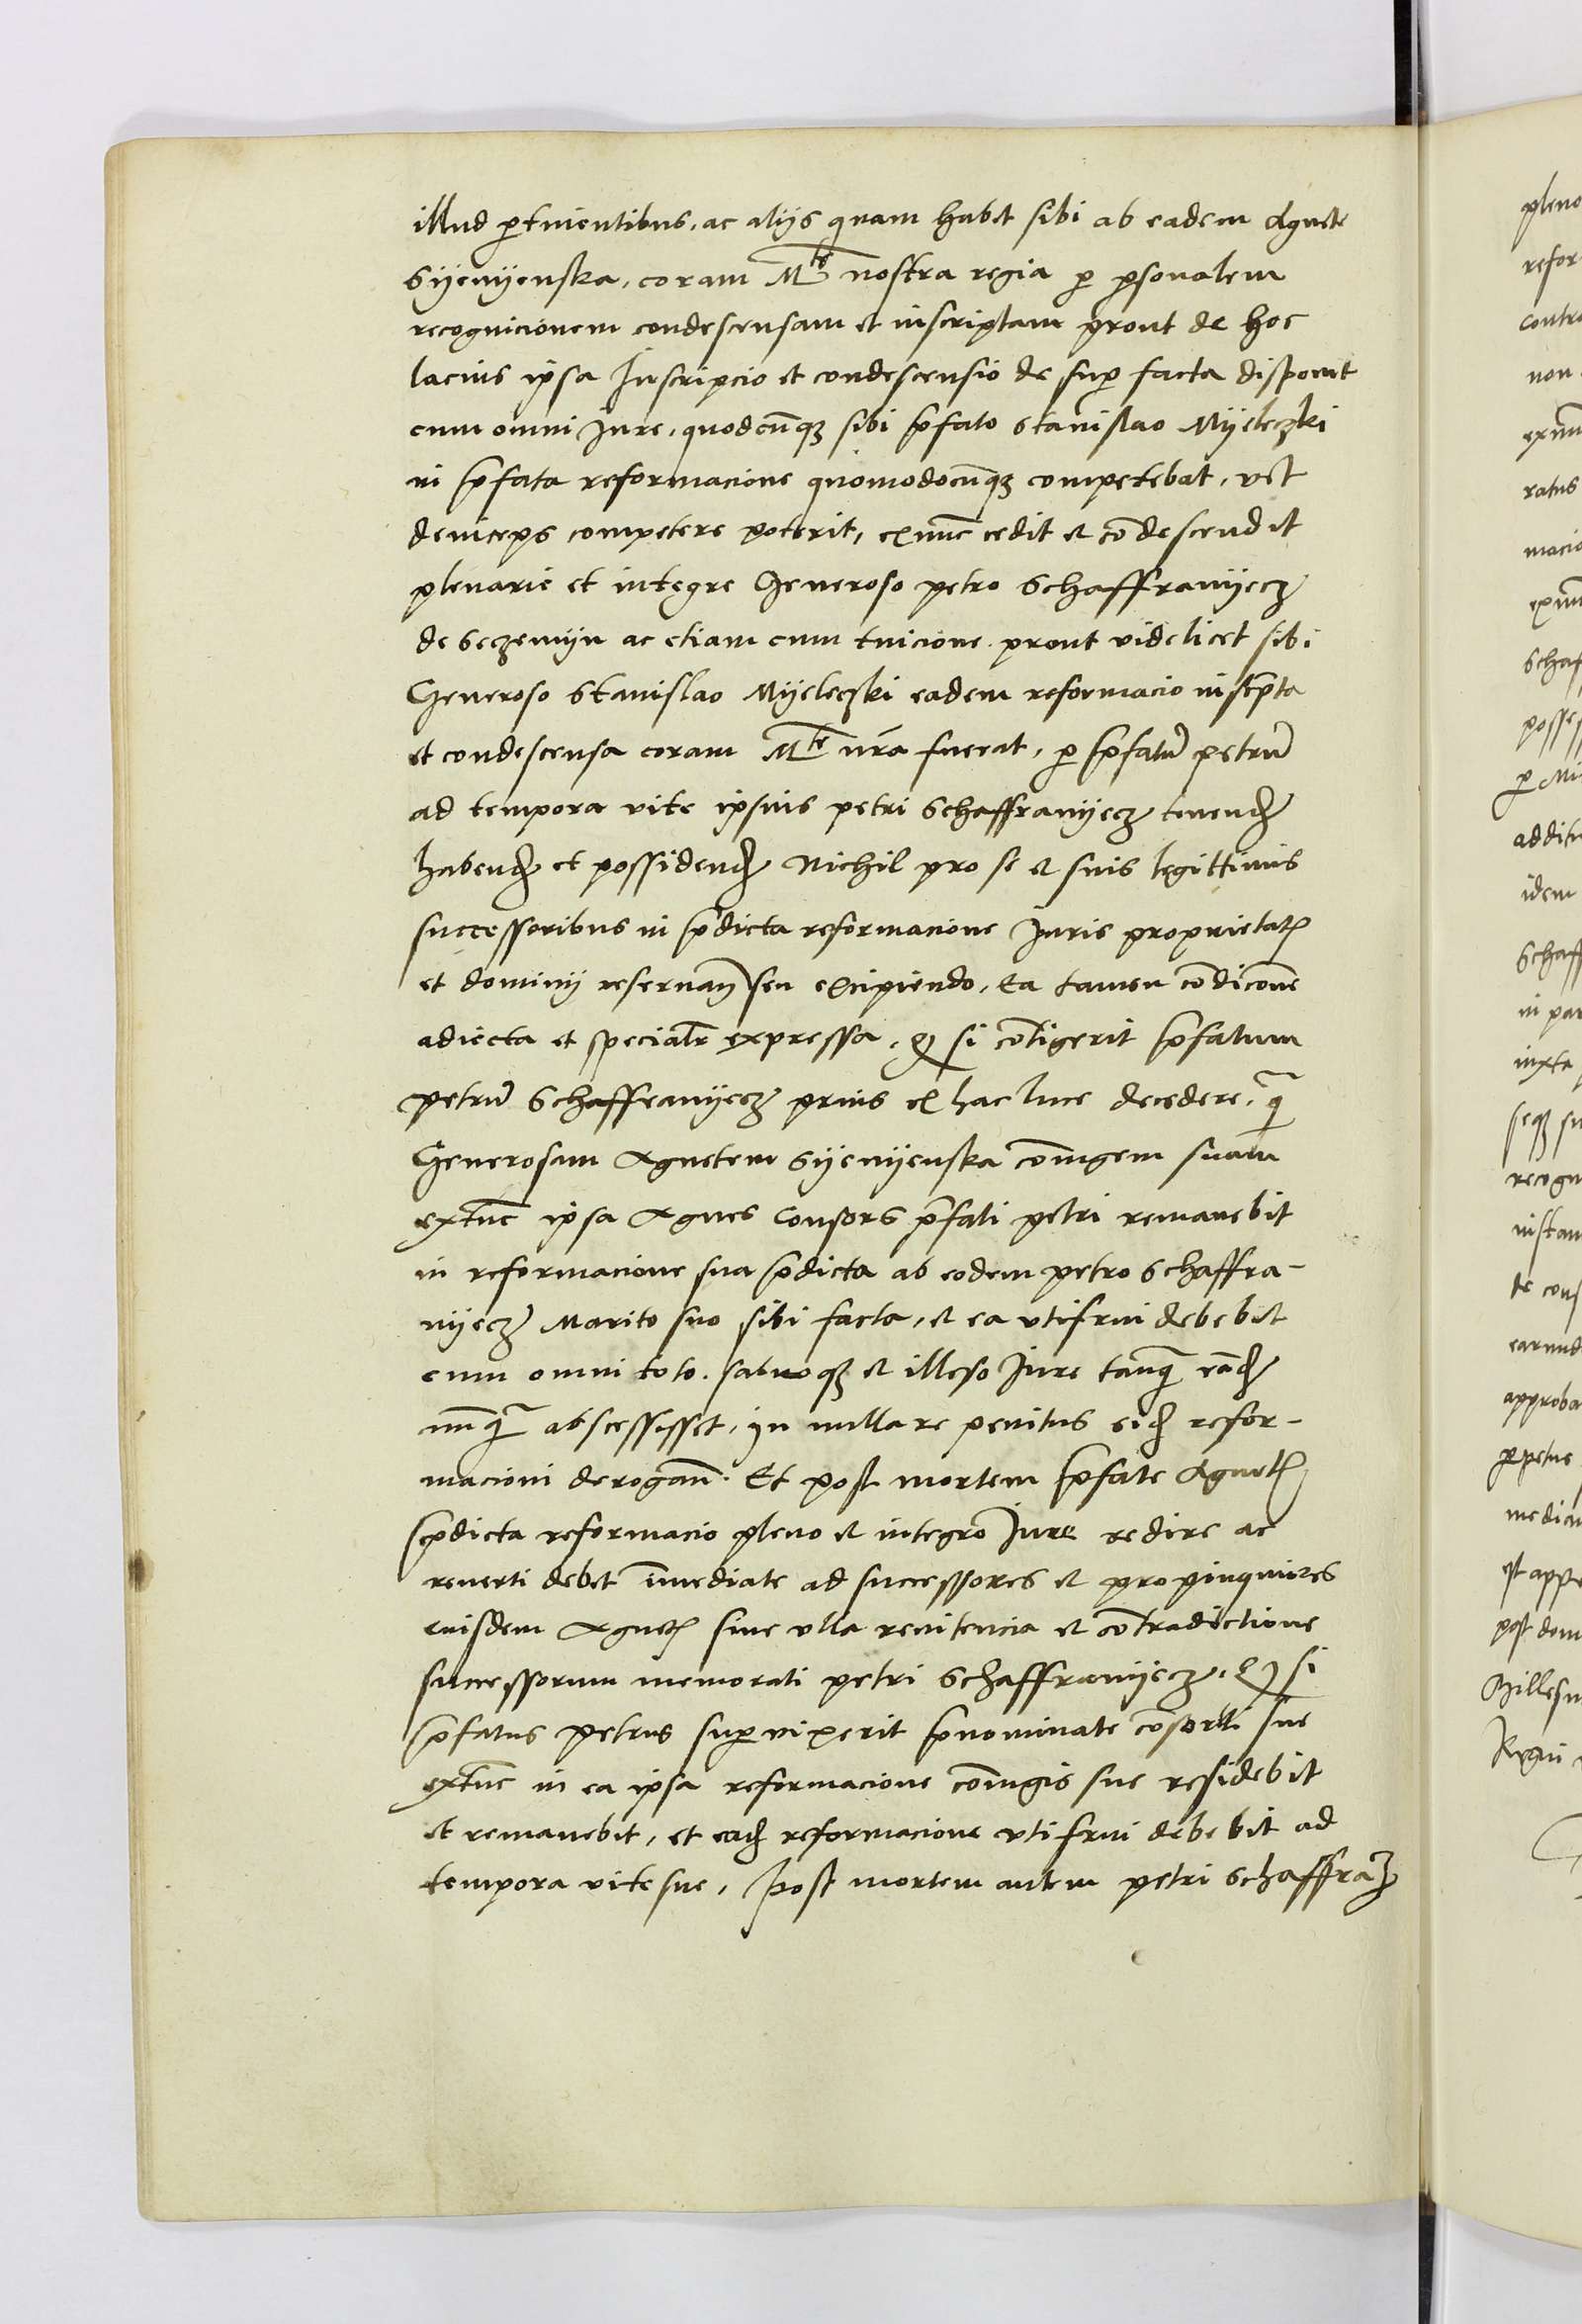 illud ꝑtinentibus, ac alijs quam habet sibi ab eadem Agnete
Syenyenska, coram Mte nostra regia ꝑ ꝑsonalem
recognicionem condescensam et inscriptam prout de hoc
lacius ipsa Inscripcio et condescensio de suꝑ facta disponit
cum omni Jure, quodcūqꝫ sibi p̄fato Stanislao Myeleczki
in p̄fata reformacione quomodocūqꝫ competebat, vel
deinceps competere poterit, exnūc cedit et cōdescendit
plenarie et integre Generoso petro Schaffranyecz
de Seczemyn ac etiam cum tuicione prout videlicet sibi
Generoso Stanislao Myeleczki eadem reformacio inscp̄ta
et condescensa coram Mte nr̄a fuerat, ꝑ p̄fatū petrū
ad tempora vite ipsius petri Schaffranyecz tenend
habend et possidend Nichil pro se et suis legittimis
successoribus in p̄dicta reformacione Juris proprietatꝭ
et dominij reseruan̄ seu excipiendo, Ea tamen cōdicōne
adiecta et specialr̄ expressa, Qꝙ si cōtigerit p̄fatum
petrū Schaffranyecz prius ex hac luce decedere, q̄
Generosam Agnetem Syenyenska cōiugem suam
extūc ipsa Agnes Consors p̄fati petri remanebit
in reformacione sua p̄dicta ab eodem petro Schaffra-
nyecz Marito suo sibi facta, et ea vtifrui debebit
cum omni toto, saluoqꝫ et illeso Jure tanq̄ eād
nūq̄ abscessisset, in nulla re penitus eid refor-
macioni derogan̄. Et post mortem p̄fate Agnetꝭ
p̄dicta reformacio pleno et integro Jure redire ac
reuerti debet īmediate ad successores et propinquiores
eiusdem Agnetꝭ sine vlla renitencia et cōtradictione
successorum memorati petri Schaffranyecz, Qꝙ si
p̄fatus petrus suꝑvixerit p̄nominate cōsorti sue
extūc in ea ipsa reformacione cōiugis sue residebit
et remanebit, et ead reformacione vtifrui debebit ad
tempora vite sue, Post mortem autem petri Schaffrāꝫ